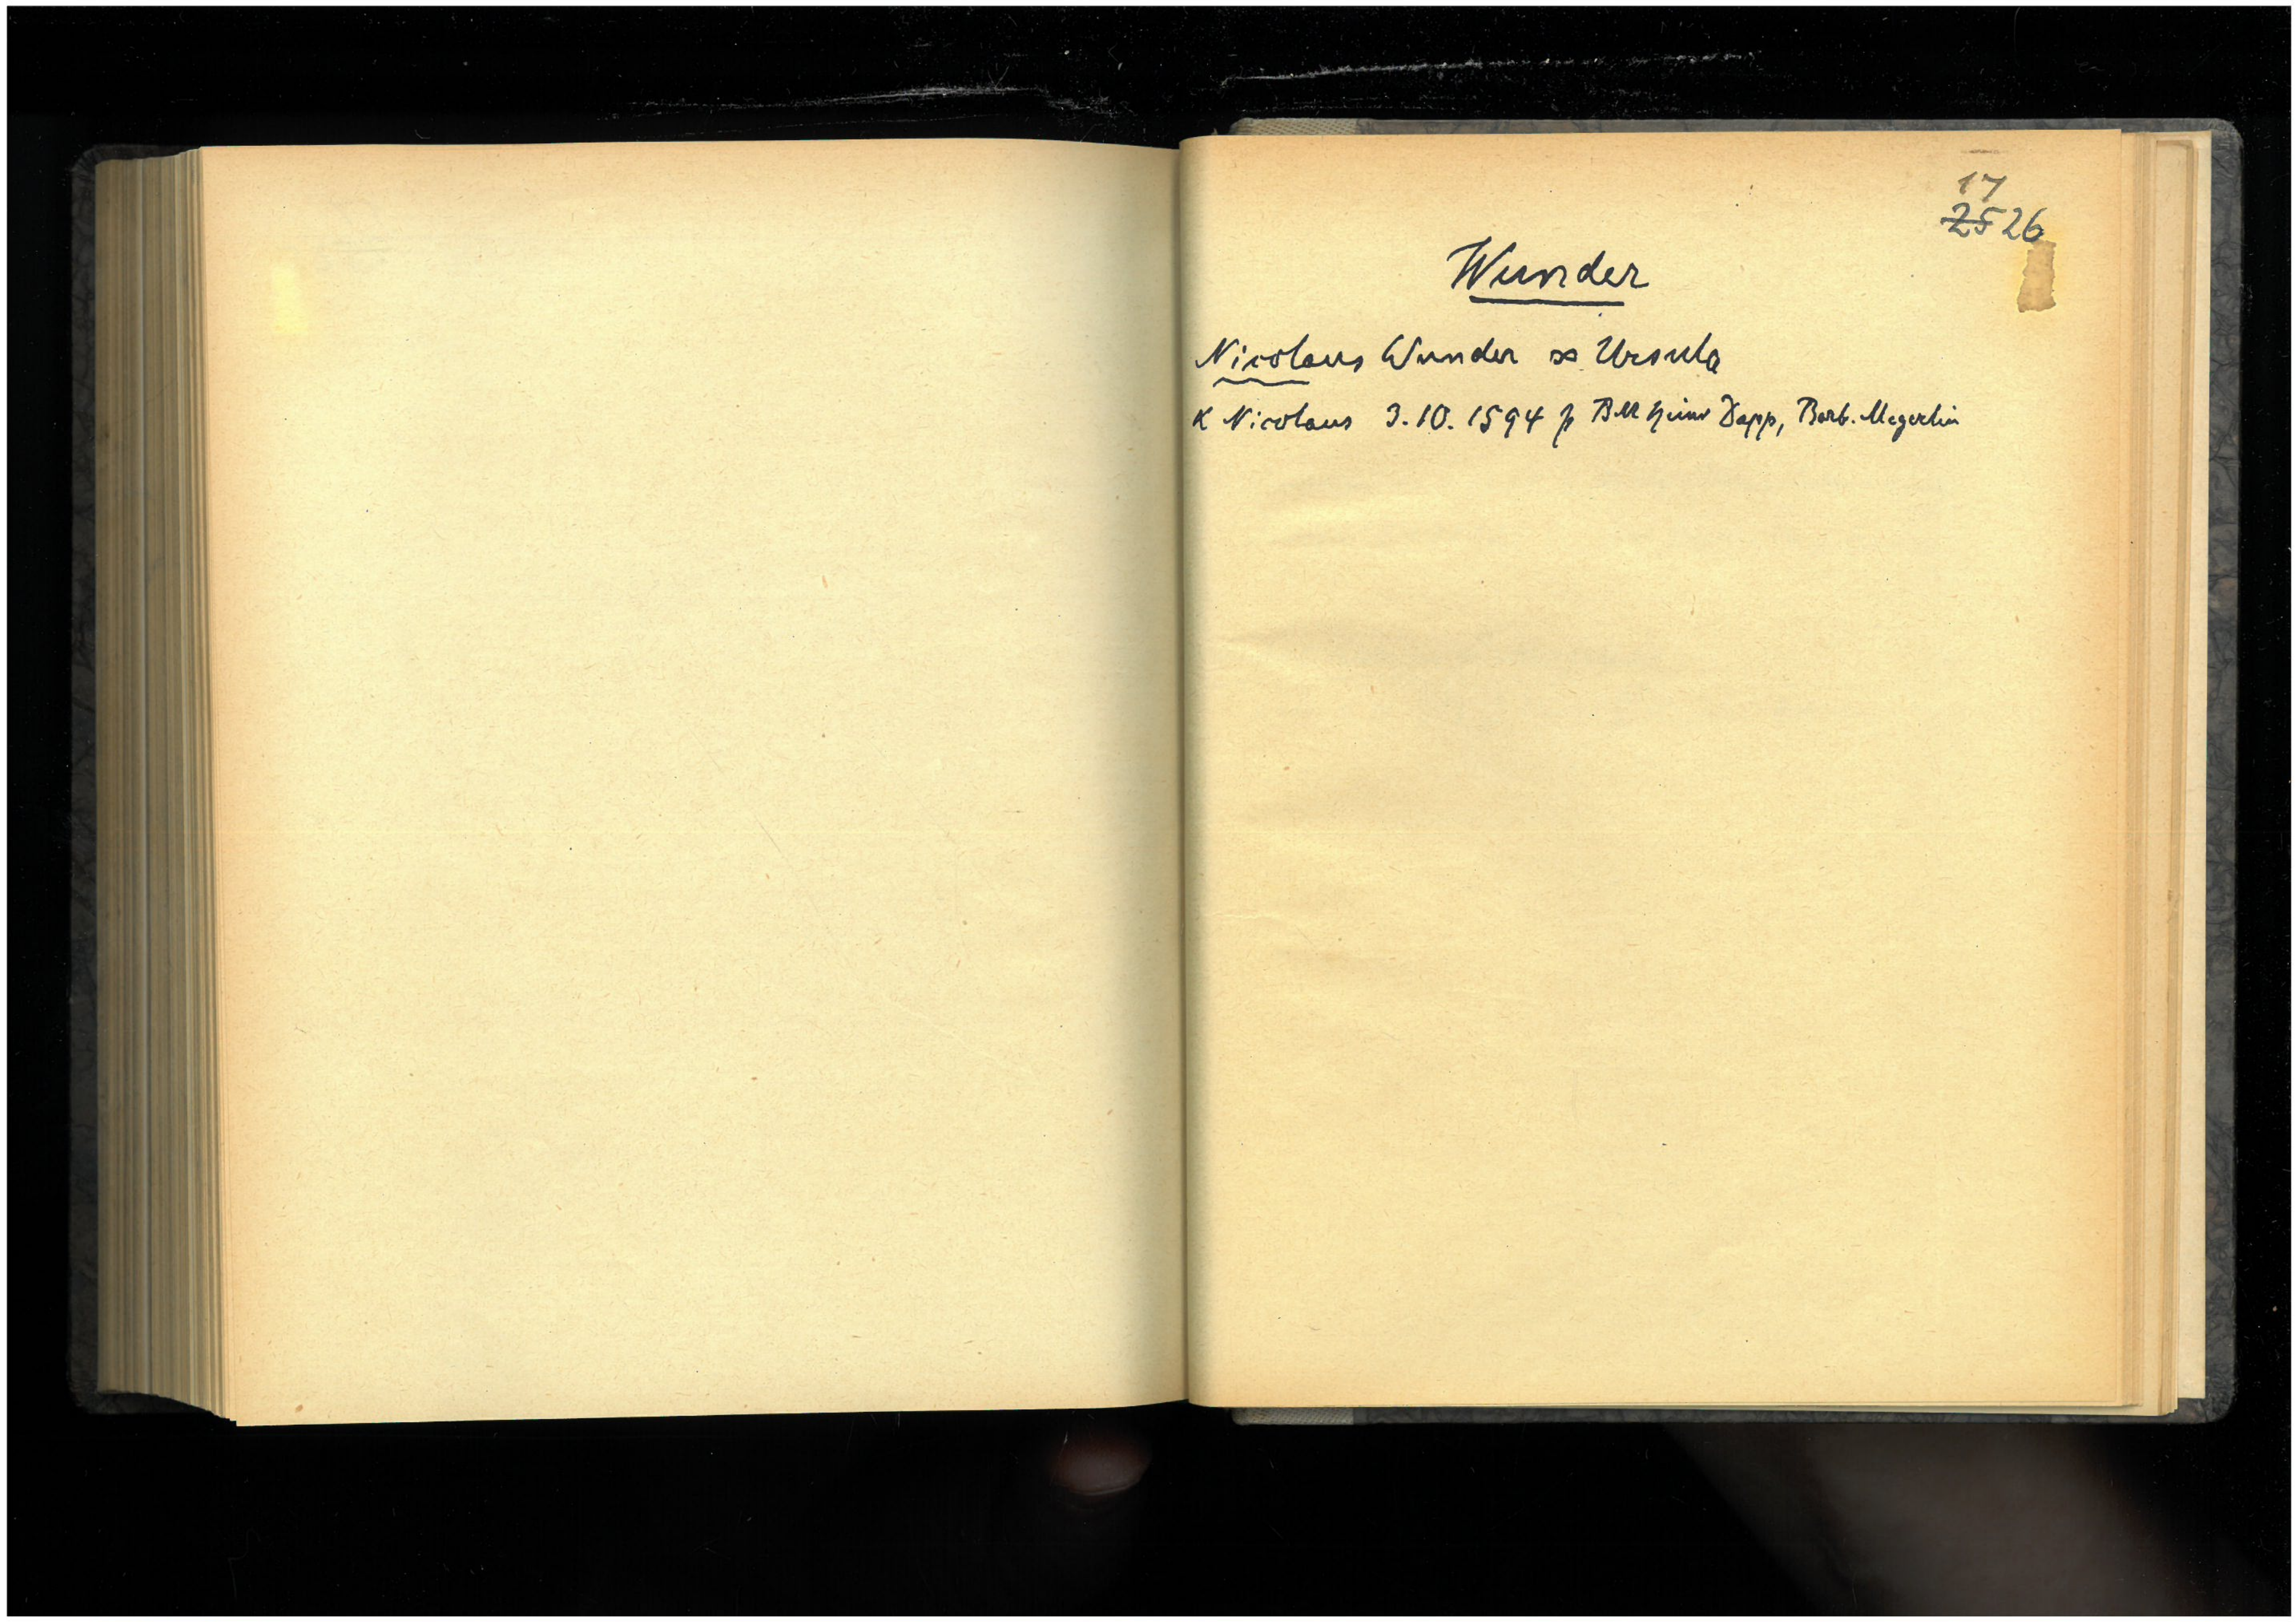 17
25 26
Wunder
Nicolaus Wunder ∞ Ursula
K Nicolaus 3.10.1594 p BM Heinr Dapp, Barb. Megerlin